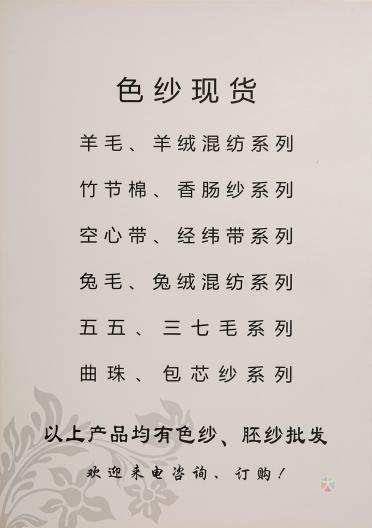 色纱现货
羊毛、羊绒混纺系列
竹节棉、香肠纱系列
空心带、经纬带系列
兔毛、兔绒混纺系列
五五、三七毛系列
曲珠、包芯纱系列
以上产品均有色纱、胚纱批发
欢迎来电咨询、订购！